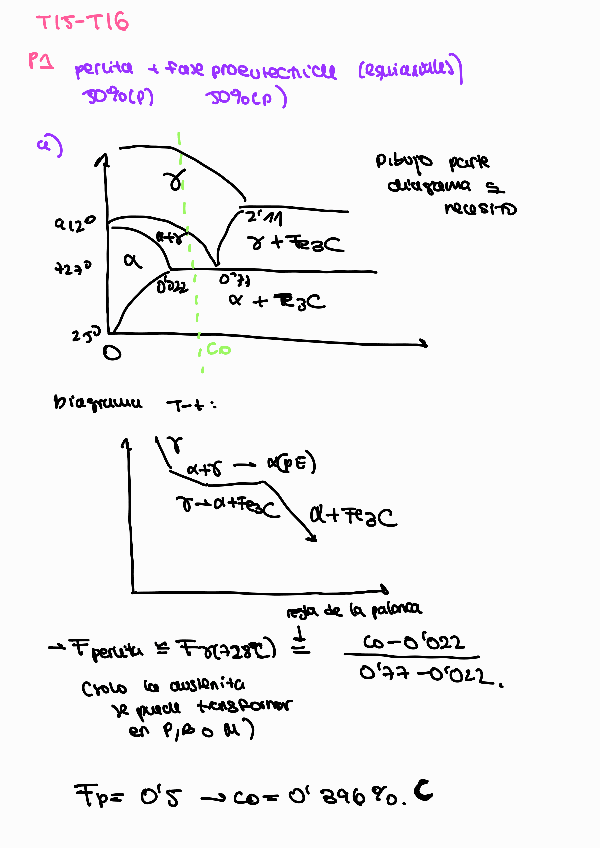 T15-T16
P1 perlita + fase proeutectoide (equiaxiales)
50%(P) 50%(P)
a)
Dibujo parte
diagrama q
necesito
γ
912º
α+γ
2'11
γ + Fe3C
α
727º
0'022
0'77
α + Fe3C
25º
0
Co
Diagrama T-t:
γ
α+γ → α(PE)
γ→α+Fe3C
α+Fe3C
regla de la palanca
→ Fperlita ≅ Fγ(728ºC) = Co-0'022
0'77-0'022.
(solo la austenita
se puede transformar
en P, B o M)
Fp= 0'5 → Co= 0'396%. C